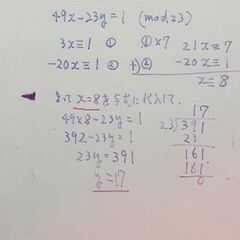 49x-23y=1 (mod23)
3x≡1 ① ①×7 21x≡7
-20x≡1 ② +)② -20x≡1
x≡8
よってx=8を与式に代入して、
49×8-23y=1
392-23y=1
23y=391
y=17
17
23)391
23
161
161
0